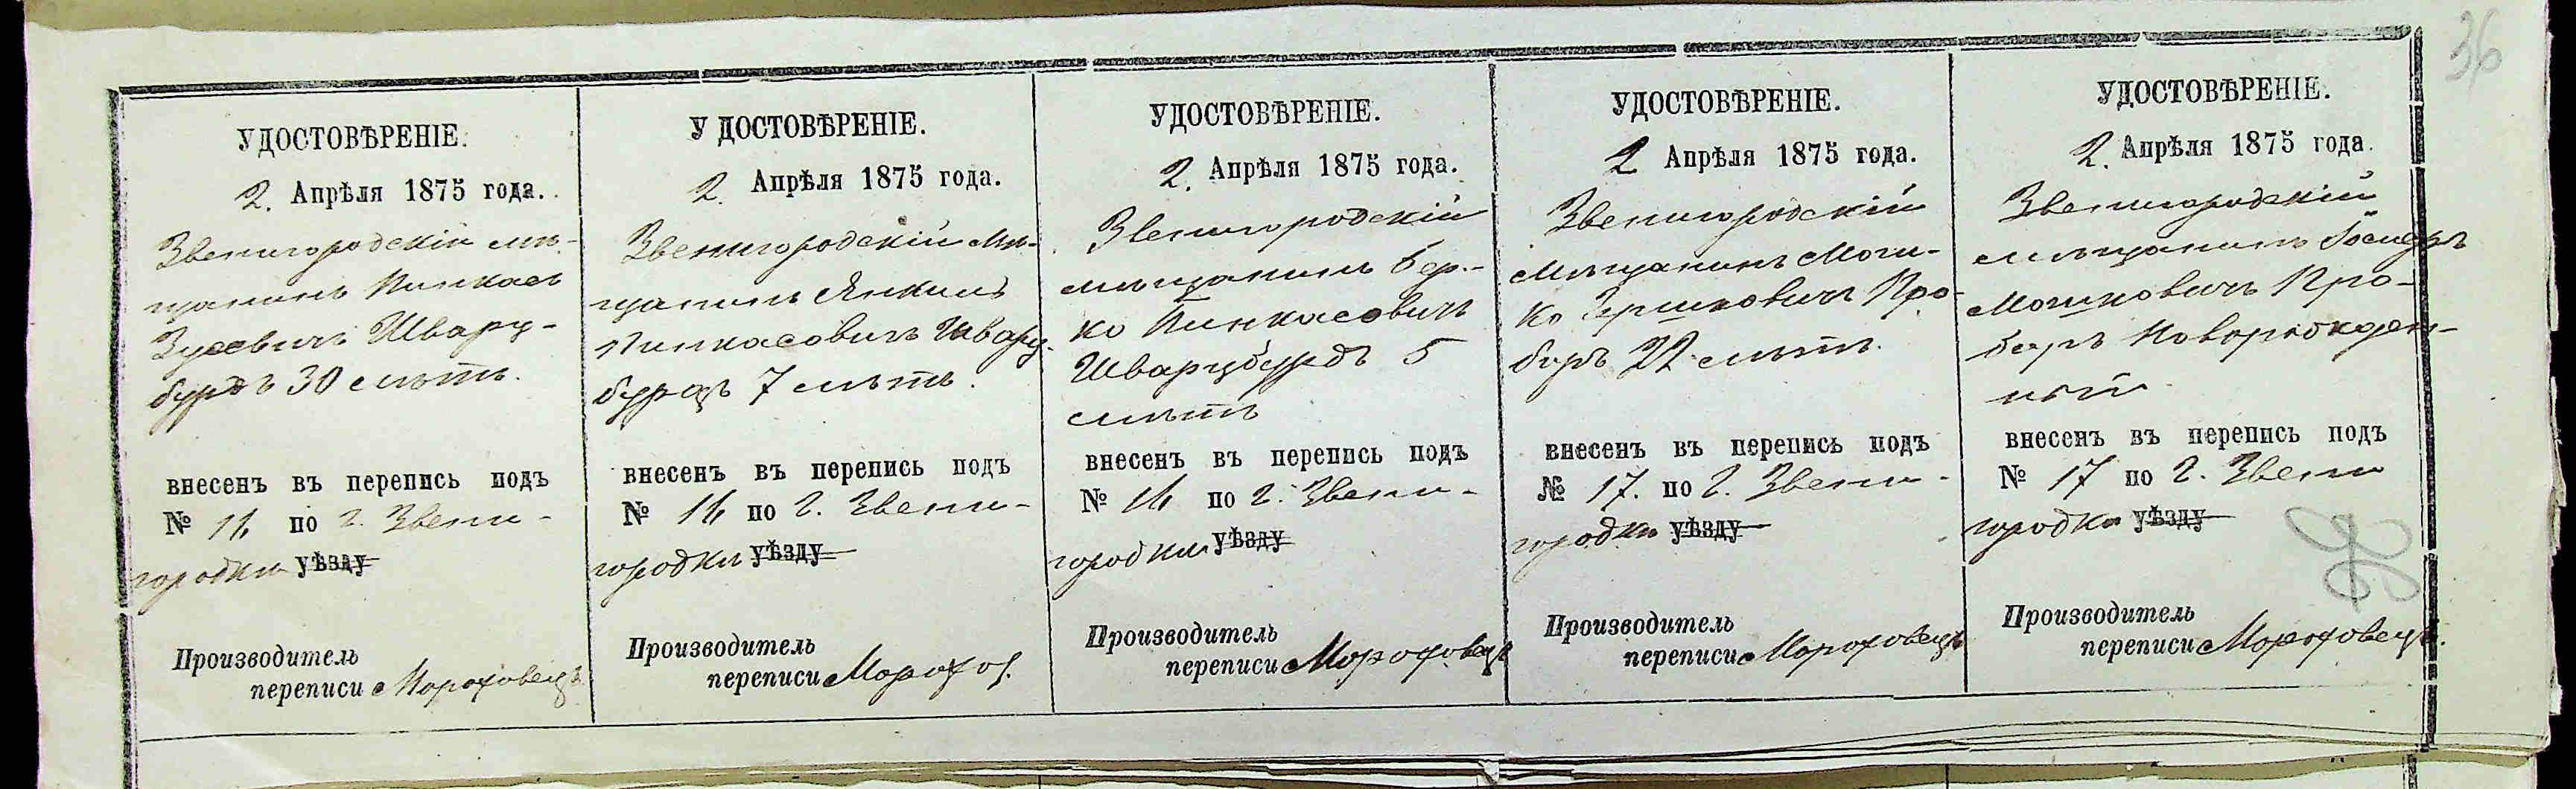 36
УДОСТОВѢРЕНІЕ.
2. Апрѣля 1875 года.
Звенигородскій мѣ-
щанинъ Пинкасъ
Зусевичъ Шварц-
бурдъ 30 лѣтъ.
внесенъ въ перепись подъ
№ 16 по г. Звени-
городки уѣзду
Производитель
переписи Мороховецъ
У ДОСТОВѢРЕНІЕ.
2. Апрѣля 1875 года.
Звенигородскій мѣ-
щанинъ Янкель
Пинкасовичъ Шварц-
бурдъ 7 лѣтъ.
внесенъ въ перепись подъ
№ 16 по г. Звени-
городки уѣзду
Производитель
переписи Морохов.
УДОСТОВѢРЕНІЕ.
2. Апрѣля 1875 года.
Звенигородскій
мѣщанинъ Бер-
ко Пинкасовичъ
Шварцбурдъ 5
лѣтъ
внесенъ въ перепись подъ
№ 16 по г. Звени-
городки уѣзду
Производитель
переписи Мороховецъ
УДОСТОВѢРЕНІЕ.
2 Апрѣля 1875 года.
Звенигородскій
мѣщанинъ Мош-
ко Гершковичъ Про-
беръ 22 лѣтъ.
внесенъ въ перепись подъ
№ 17. по г. Звени-
городки уѣзду
Производитель
переписи Мороховецъ
УДОСТОВѢРЕНІЕ.
2. Апрѣля 1875 года.
Звенигородскій
мѣщанинъ
Мошковичъ Про-
беръ новорожден-
ный
внесенъ въ перепись подъ
№ 17 по г. Звени
городки уѣзду
Производитель
переписи Мороховецъ.